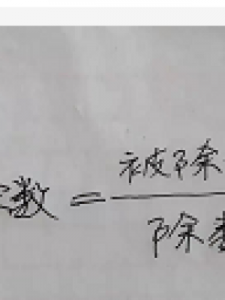 数 = 被除
除